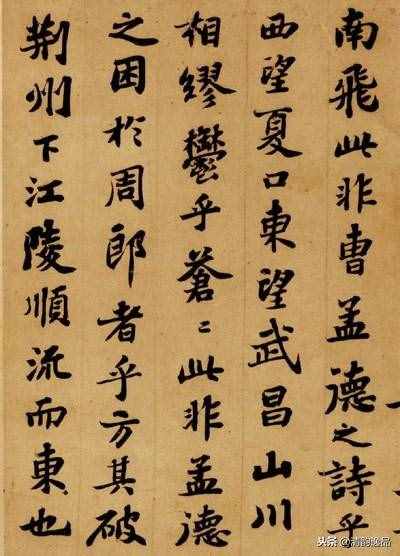 南飛此非曹孟德之詩乎
西望夏口東望武昌山川
相繆鬱乎蒼〻此非孟德
之困於周郎者乎方其破
荊州下江陵順流而東也
头条